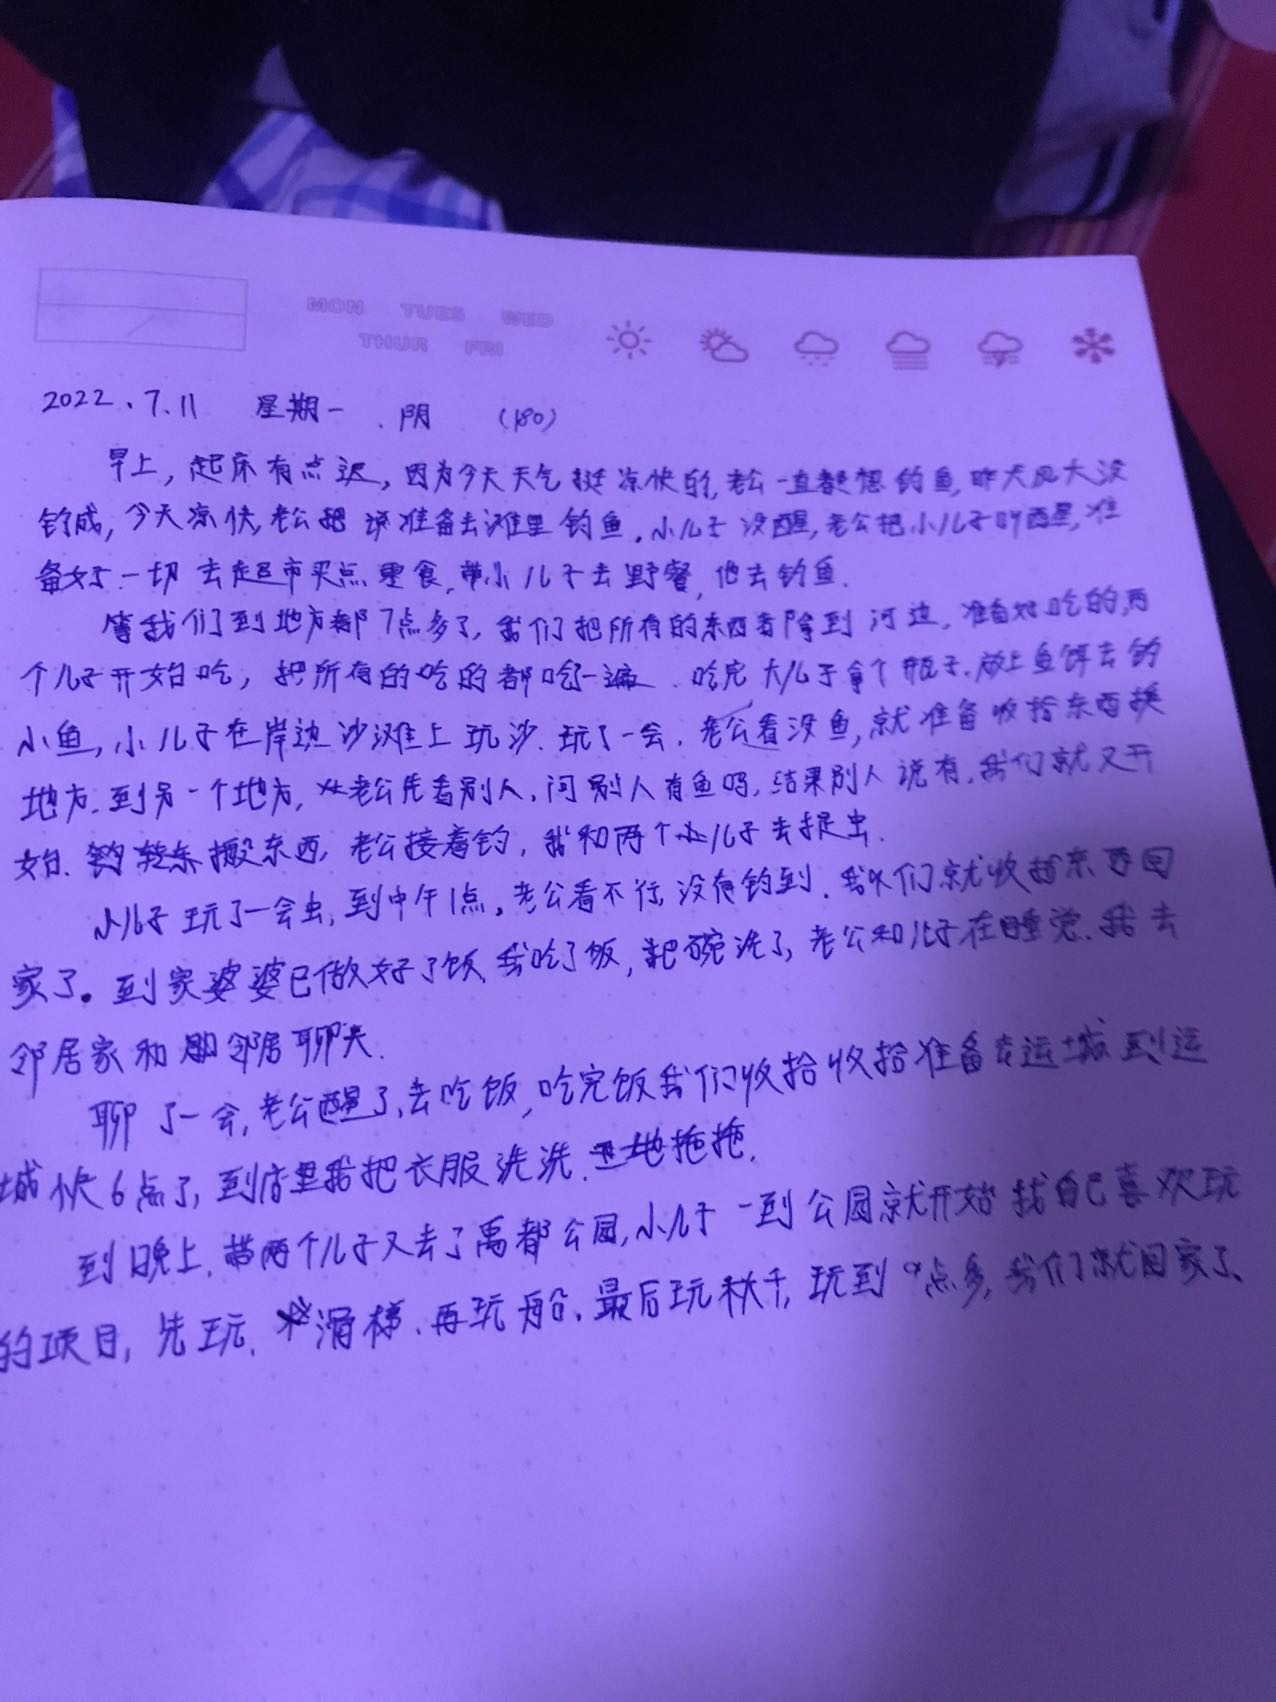 MON TUES WED
THUR FRI
2022.7.11 星期一.阴 (180)
早上,起床有点迟,因为今天天气挺凉快的,老公一直都想钓鱼,昨天风大没
钓成,今天凉快,老公把 准备去滩里钓鱼.小儿子没醒,老公把小儿子叫醒,准
备好了一切去超市买点零食,带小儿子去野餐,他去钓鱼.
等我们到地方都7点多了,我们把所有的东西都拿到河边,准备好吃的,两
个儿子开始吃,把所有的吃的都吃一遍.吃完大儿子拿个瓶子.放上鱼饵去钓
小鱼,小儿子在岸边沙滩上玩沙.玩了一会.老公看没鱼,就准备收拾东西换
地方.到另一个地方,老公先看别人,问别人有鱼吗,结果别人说有,我们就又开
始.搬东西,老公接着钓,我和两个儿子去捉虫.
小儿子玩了一会虫,到中午1点,老公看不行,没有钓到.我们就收拾东西回
家了。到家婆婆已做好了饭,我吃了饭,把碗洗了,老公和儿子在睡觉.我去
邻居家和邻居聊天.
聊了一会,老公醒了,去吃饭,吃完饭我们收拾收拾准备去运城到运
城快6点了,到店里我把衣服洗洗.地拖拖.
到晚上.带两个儿子又去了禹都公园,小儿子一到公园就开始找自己喜欢玩
的项目,先玩.滑梯.再玩船.最后玩秋千,玩到9点多,我们就回家了.